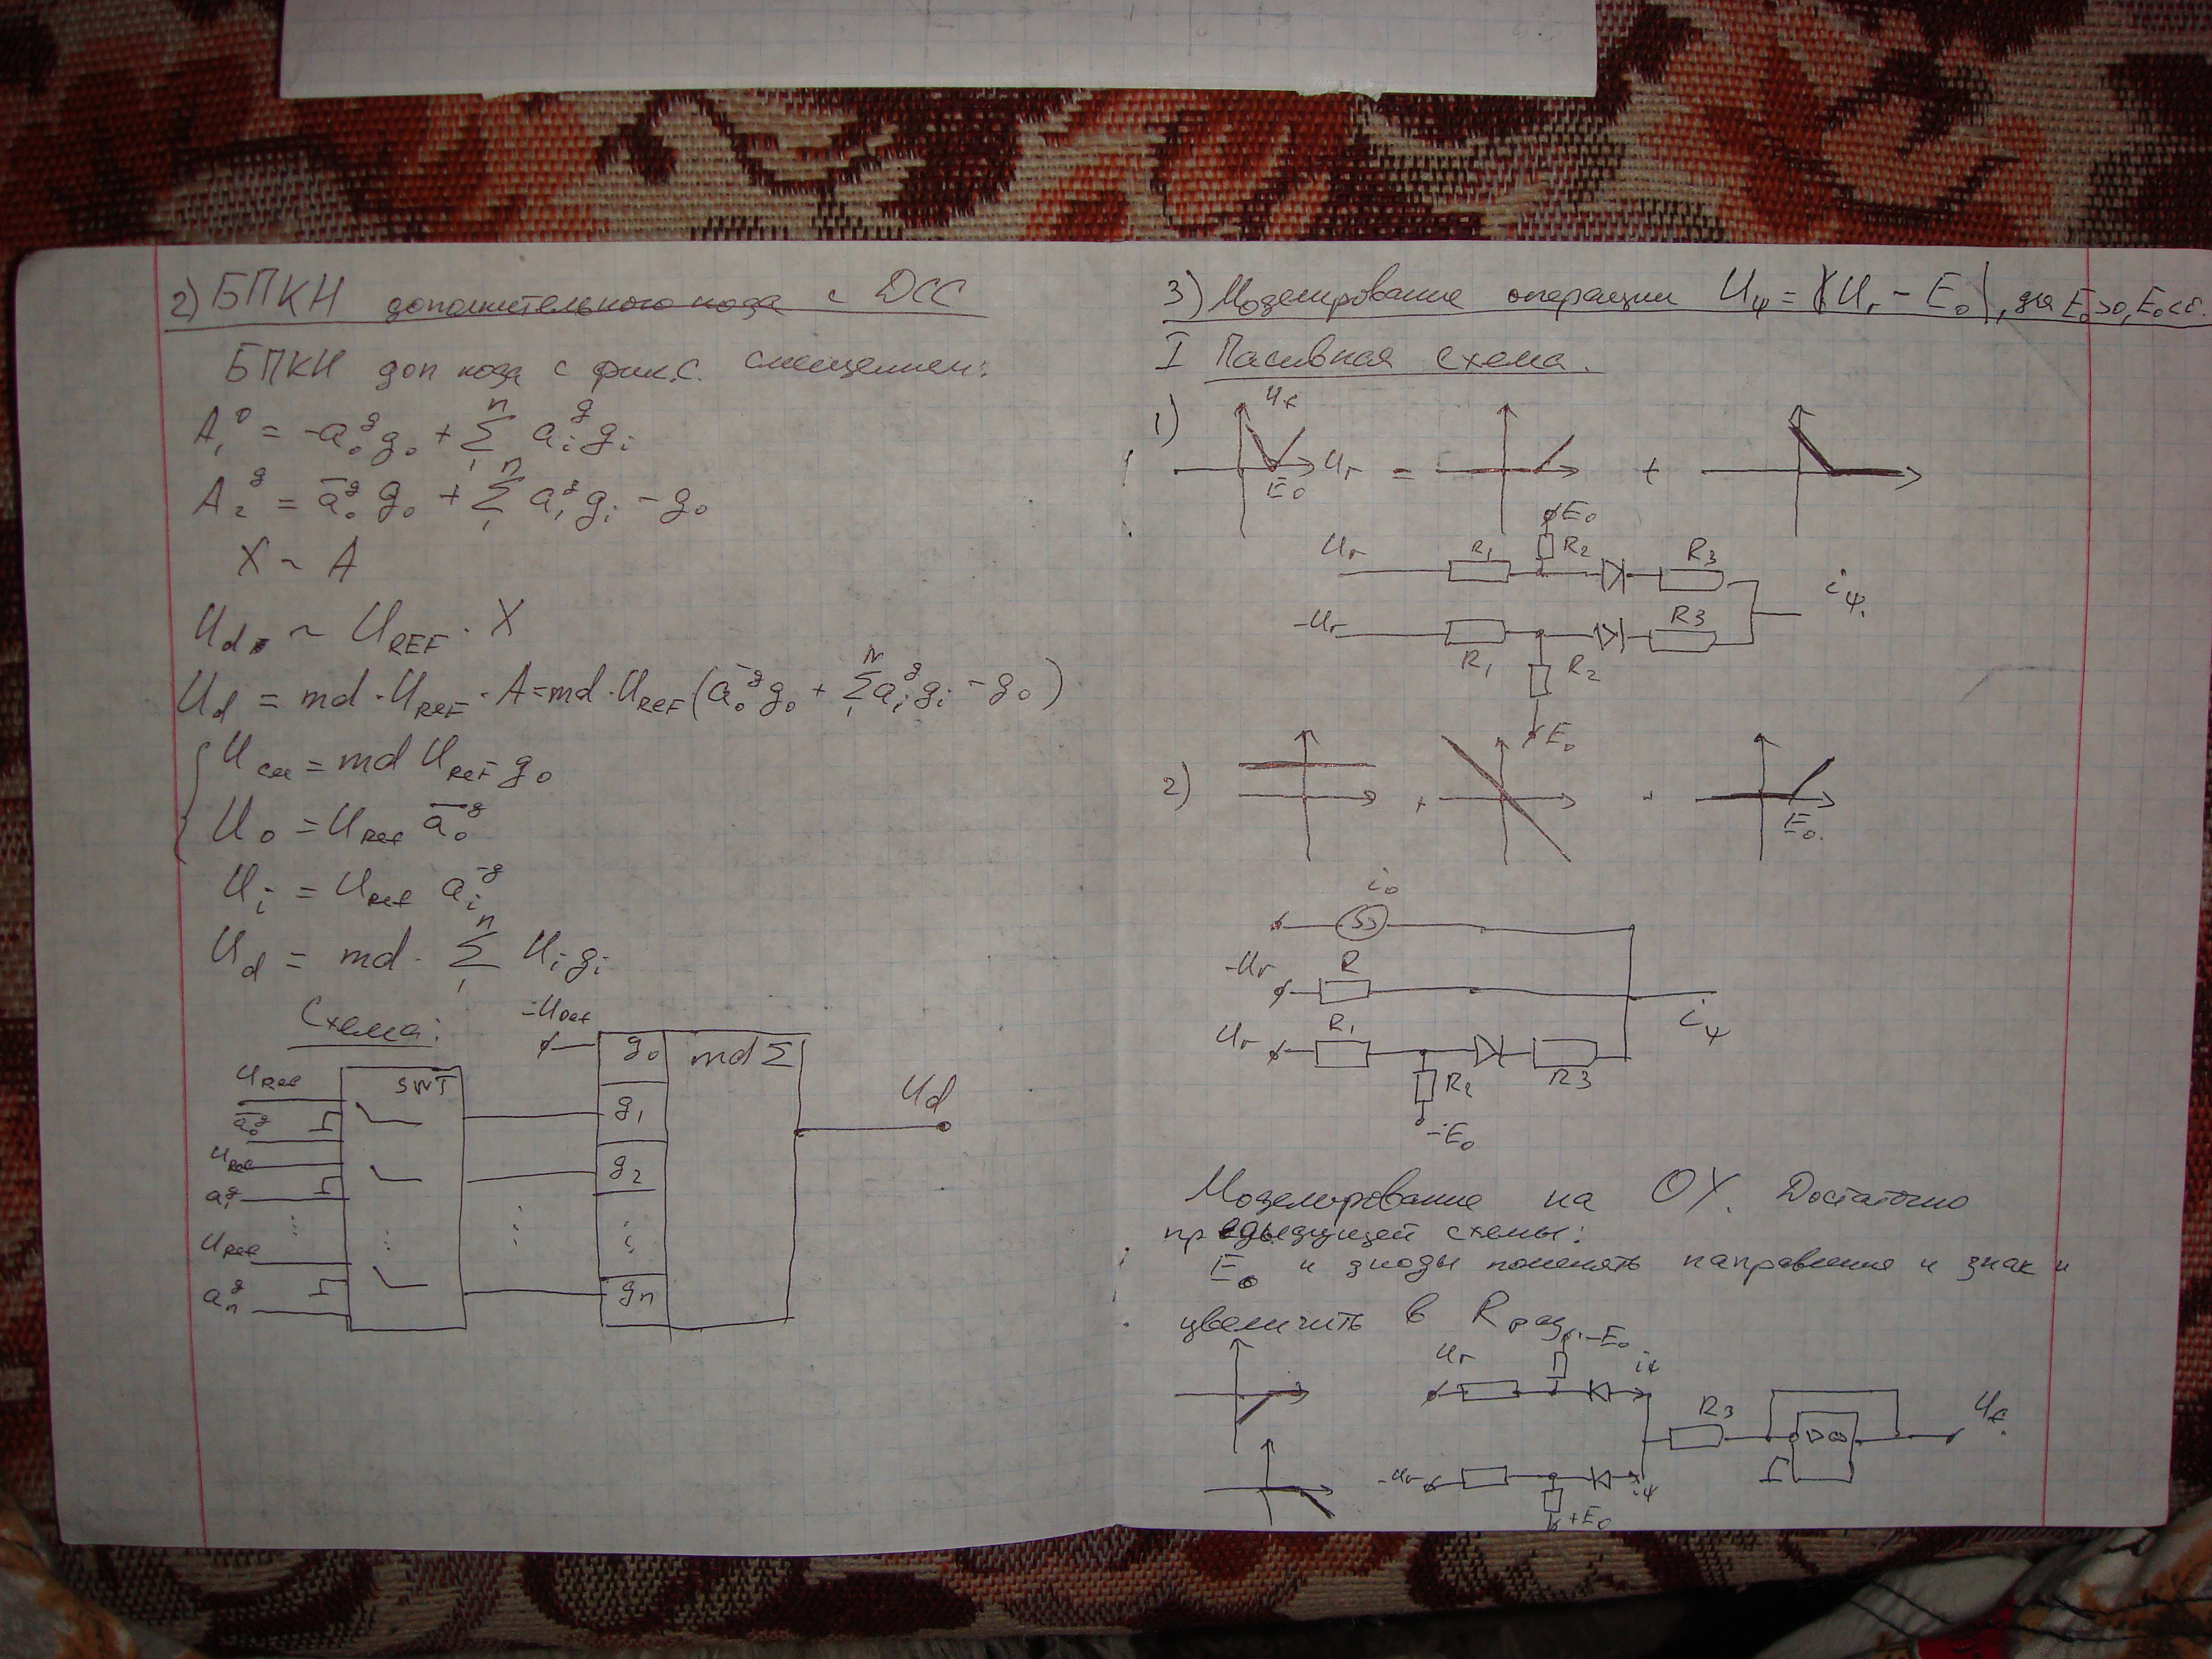 2) БПКН дополнительного кода с ДСС
БПКН доп кода с фикс. смещением:
A₁ᵍ = -a₀ᵍg₀ + Σ₁ⁿ aᵢᵍgᵢ
A₂ᵍ = ā₀ᵍ g₀ + Σ₁ⁿ aᵢᵍgᵢ - g₀
X ~ A
U_d ~ U_REF · X
U_d = md · U_REF · A = md · U_REF (ā₀ᵍg₀ + Σ₁ⁿ aᵢᵍgᵢ - g₀)
U_см = md U_REF g₀
U₀ = U_Ref ā₀ᵍ
Uᵢ = U_Ref āᵢᵍ
U_d = md · Σ₁ⁿ Uᵢgᵢ
Схема:
-U_Ref
g₀ md Σ
U_Ref SWT
ā₀ᵍ g₁ U_d
U_Ref g₂
a₁ᵍ
U_Ref i
aₙᵍ gₙ
3) Моделирование операции U_ψ = |U_r - E₀|, для E₀>0, E₀<0.
I Пасивная схема.
1) U_f U_r = +
E₀
E₀
U_r R₁ R₂ R₃
i_ψ
-U_r R₁ R₂ R3
E₀
2) + +
E₀
i₀
-U_r R
i_ψ
U_r R₁ R₂ R3
-E₀
Моделирование на ОУ. Достаточно
предыдущей схемы:
E₀ и диоды поменять направление и знак и
увеличить в R раз.
U_r -E₀ i_ψ
R₃ ▷∞ U_f
-U_r i_ψ
+E₀